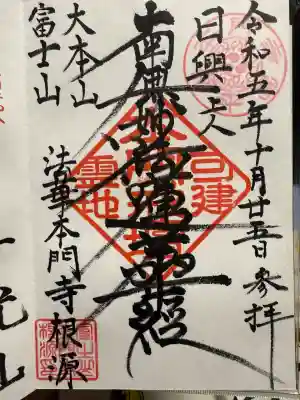 令和五年十月廿五日参拝
日興上人
南無妙法蓮華経
大本山
富士山
法華本門寺根源
霊地